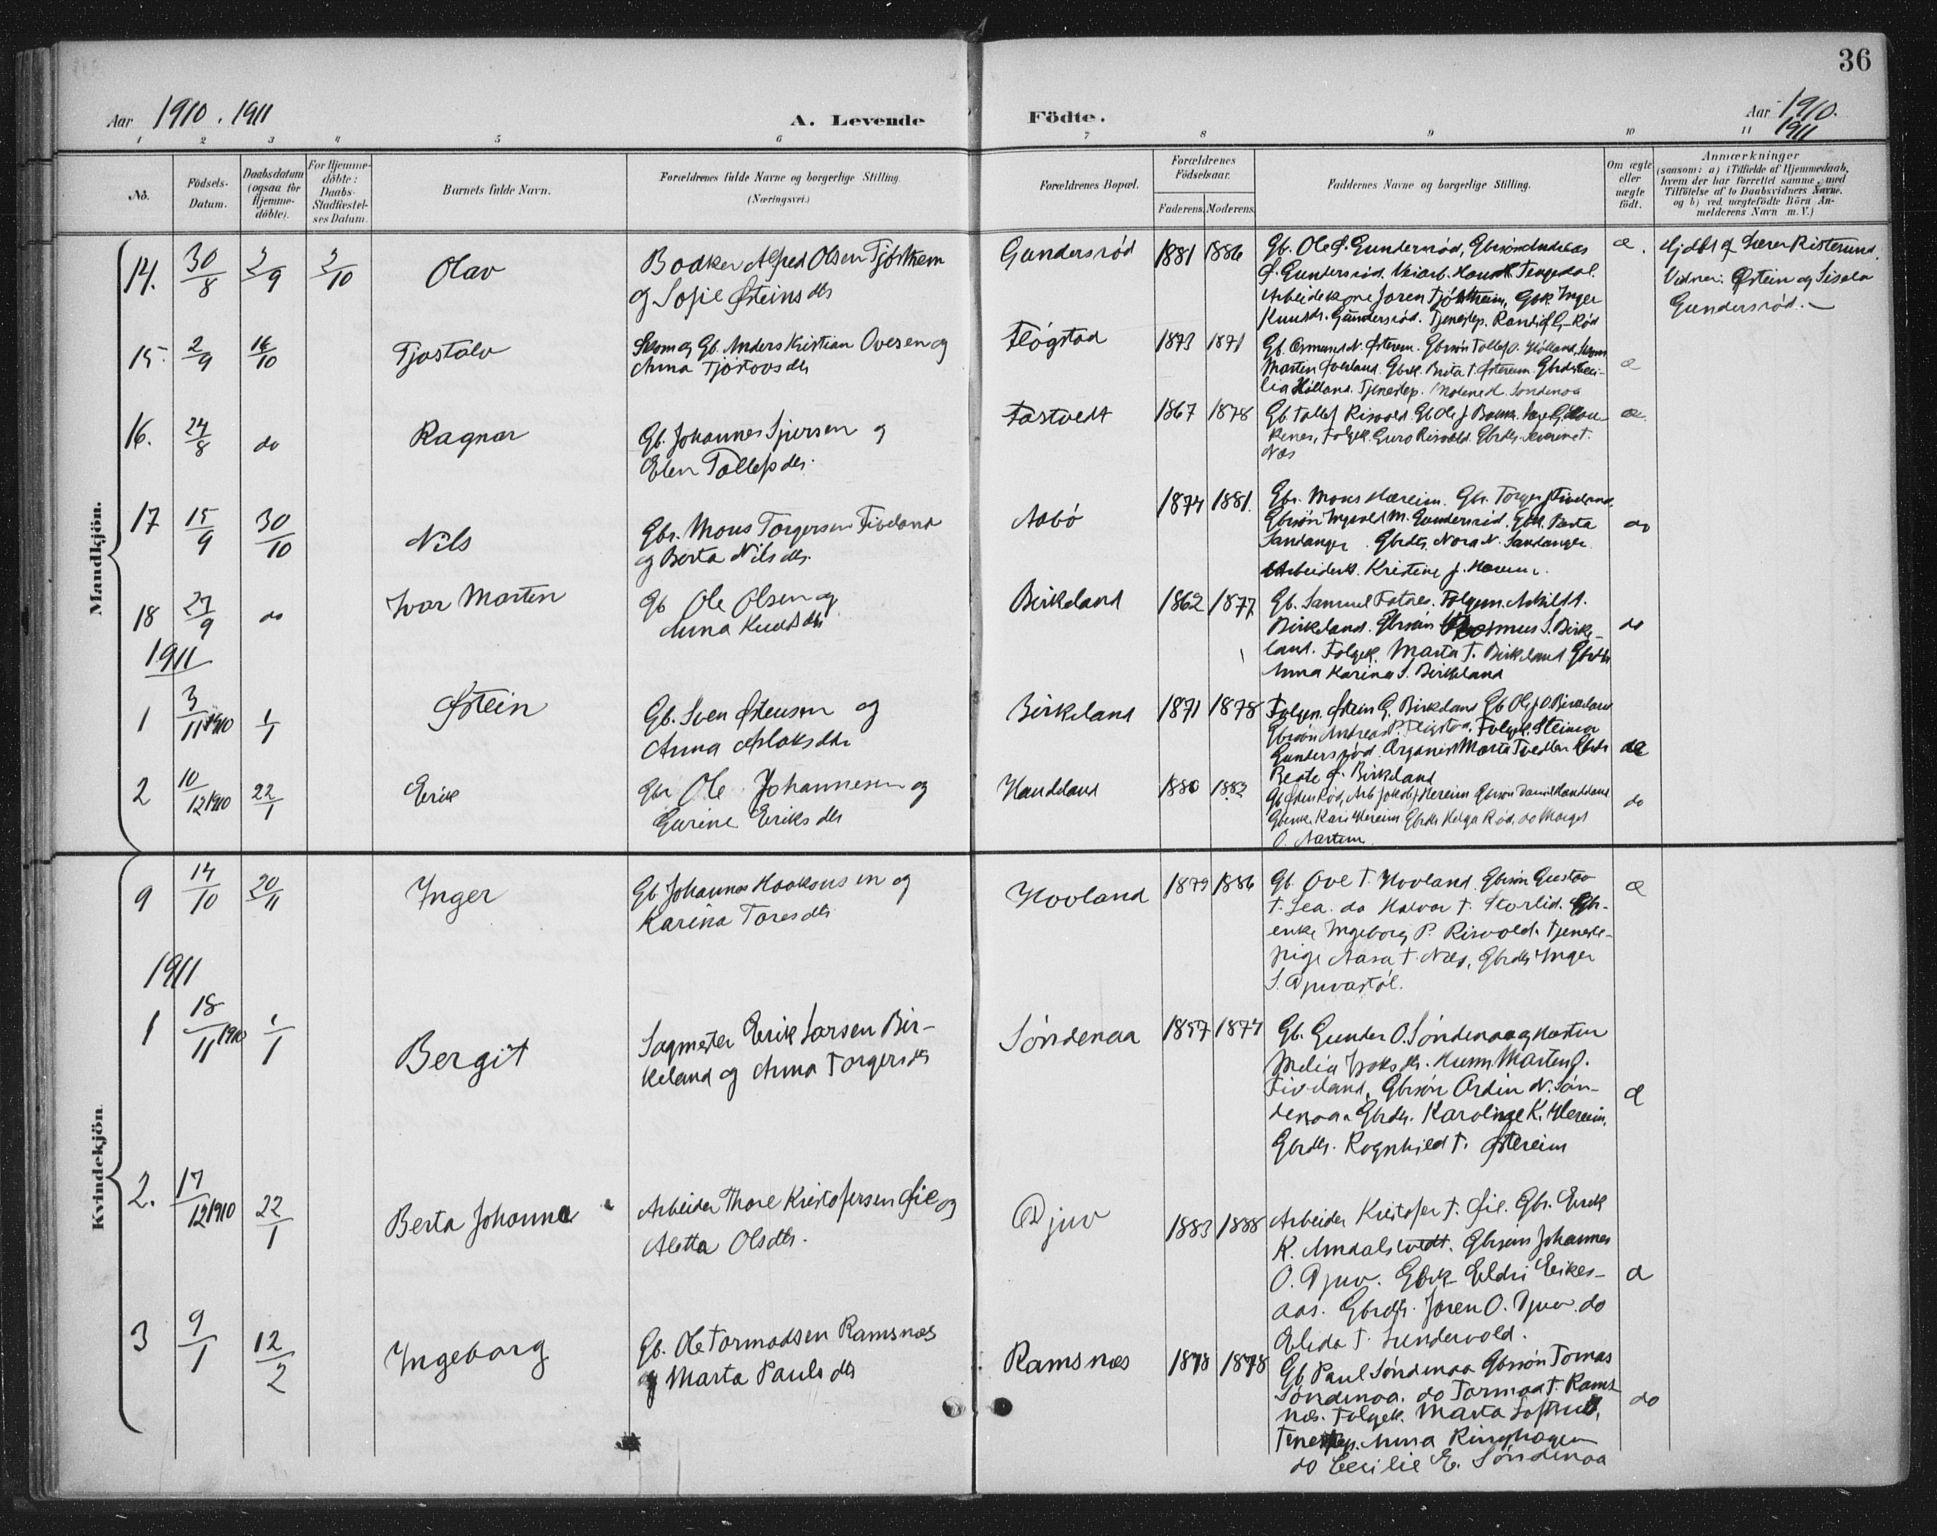 36
Aar 1910. 1911
A. Levende Födte.
Aar 1910.
1911
1 2 3 4 5 6 7 8 9 10 11
No.
Födsels-
Datum.
Daabsdatum
(ogsaa for
Hjemme-
döbte).
For Hjemme-
döbte:
Daabs-
Stadfæstel-
ses Datum.
Barnets fulde Navn.
Forældrenes fulde Navne og borgerlige Stilling.
(Næringsvei.)
Forældrenes Bopæl.
Forældrenes
Födselsaar.
Faderens. Moderens.
Faddernes Navne og borgerlige Stilling.
Om ægte
eller
uægte
födt.
Anmærkninger
(saasom: a) i Tilfælde af Hjemmedaab,
hvem der har forrettet samme, med
Tilföielse af to Daabsvidners Navne.
og b) ved uægtefödte Börn An-
melderens Navn m. V.)
Mandkjön.
14. 30/8 3/9 3/10 Olav
Bødker Alfred Olsen Tjöstheim
og Sofie Østeinsdtr
Gundersröd 1881 1886
Gb. Ole Ø. Gundersröd, Gbrsön Andreas
Ø. Gundersröd. Tengesdal.
Arbeiderkone Joren Tjöstheim, Gbk. Inger
Knudsdr. Gundersröd. Tjenestep. Randi
æ.
Hjdbt af Lærer Risterund.
Vidner: Østein og Sissela
Gundersröd.
15. 2/9 16/10 Tjostolv
og Gb. Anders Kristian Ovesen og
Anna Tjostovsdtr
Flögstad 1873 1871
Gb. Osmund N. Østerem. Gbrsön Tollef O. Hölland,
Martin Øverland. Gbrk. Berta T. Østereim Gbrdtr Ceci-
lia Hölland. Tjenestep. Söndenaa
æ
16. 24/8 do Ragnar
Gb. Johannes Sjursen og
Elen Tollefsdtr.
Fastvedt 1867 1878
Gb Tollef Risvold. Gb Ole J.
Folgek. Guro Risvold. Gbrdtr
Næs
æ.
17 15/9 30/10 Nils
Gbr. Mons Torgersen Fiveland
og Berta Nilsdtr.
Aabö 1874 1881.
Gbr. Mons Hereim. Gbr. Torger Fiveland.
Gbrsön Ingvald M. Gundersröd. Gbk. Berta
Sandanger. Gbrdtr. Nora N. Sandanger.
Arbeiderk. Kristine J.
do
18 27/9 do Ivar Marten
Gb Ole Olsen og
Anna Knudsdtr
Birkeland 1862 1877
Gb. Samuel Folgem.
Birkeland. Gbrsön Rasmus S. Birke-
land. Folgek. Marta T. Birkeland Gbrdtr
Anna Karina S. Birkeland
do
1911
1 3/11 1910 1/1 Østein
Gb. Sven Østensen og
Anna Aslaksdtr
Birkeland 1871 1878
Folgem. Østein G. Birkeland Gb Ole J O Birkeland
Gbrsön Andreas P. Flögstad. Folgek. Steinvor
Gundersröd. Organist Marta Gbrdtr
Beate Ø. Birkeland
do
2 10/12 1910 22/1 Erik
Gbr Ole Johannesen og
Gurine Eriksdtr
Handeland 1880 1882
Gb Østen Röd, Arb Jakob J. Hereim Gbrsön Daniel Handeland
Gbenk. Kari Hereim Gbrdtr Helga Röd. do Marget
O. Nærtun
do
Kvindekjön
9 14/10 20/11 Inger
Gb Johannes Haakonsen og
Karina Toresdtr
Hovland 1879 1886
Gb. Ove T. Hovland. Gbrsön Gustav
T. Lea. do Halvor T. Storlid. Gbr-
enke Ingeborg P. Risvold. Tjeneste-
pige Aasa T. Næs, Gbrdtr Inger
S. Djuvastöl.
æ
1911
1 18/11 1910 1/1 Bergit
Sagmester Erik Larsen Bir-
keland og Anna Torgersdtr
Söndenaa 1857 1874
Gb. Gunder O. Söndenaa og Hustru
Melia Isaksdtr. Husm. Marten O.
Fiveland, Gbrsön Ordin N. Sön-
denaa. Gbrdtr. Karoline K. Hereim,
Gbrdtr. Rognhild T. Østereim
æ
2. 17/12 1910 22/1 Berta Johanna
Arbeider Thore Kristofersen Øie og
Aletta Olsdtr.
Djuv 1883 1888
Arbeider Kristofer T. Øie. Gbr. Erik
K. Amdalstvedt. Gbrsön Johannes
O. Djuv. Gbrk Eldri Eikes-
aas. Gbrdtr. Joren O. Djuv. do
Elida T. Sundervold.
æ
3 9/1 12/2 Ingeborg
Gb. Ole Tormodsen Ramsnæs
og Marta Paulsdtr
Ramsnæs 1878 1878
Gb Paul Söndenaa Gbrsön Tomas
Söndenaa. do Tormod T. Rams-
næs. Folgek. Marta Loftrud,
Tenestep. Anna Ringhagen
do Cecilie E. Söndenaa
do